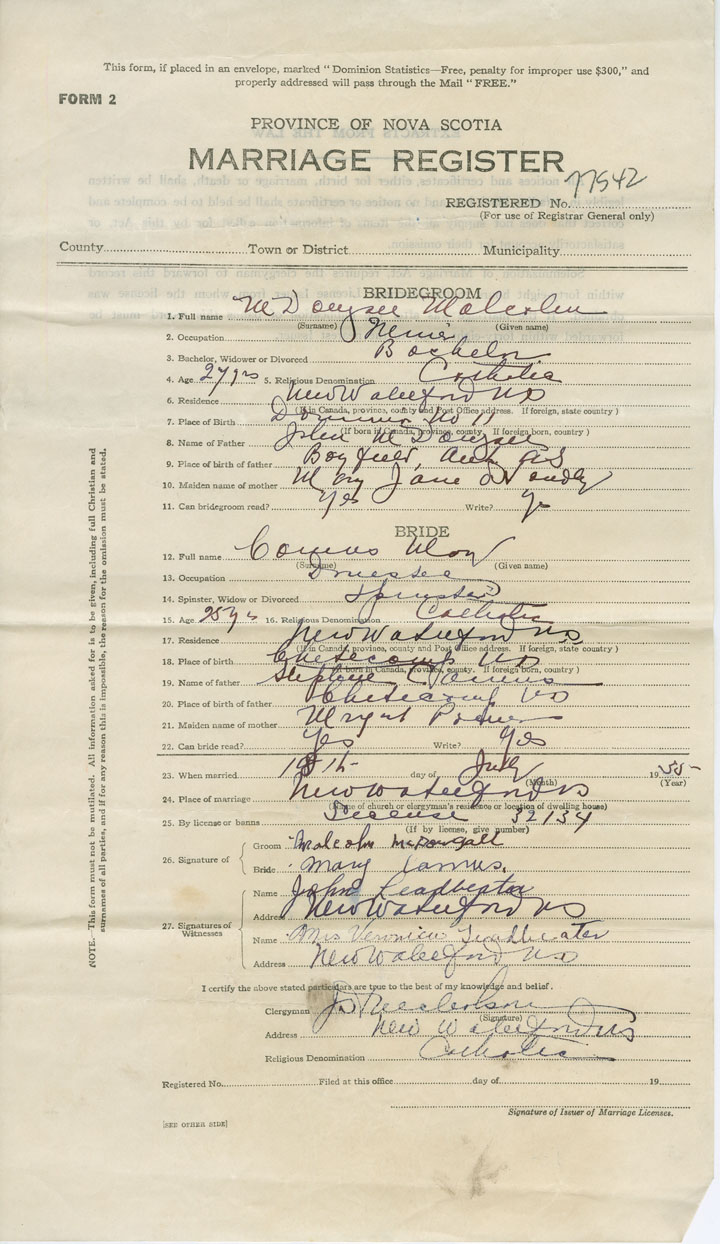 This form, if placed in an envelope, marked "Dominion Statistics—Free, penalty for improper use $300," and
properly addressed will pass through the Mail "FREE."
FORM 2
PROVINCE OF NOVA SCOTIA
MARRIAGE REGISTER
77542
REGISTERED No.
(For use of Registrar General only)
County Town or District Municipality
BRIDEGROOM
1. Full name Malcolm
(Surname) (Given name)
2. Occupation
3. Bachelor, Widower or Divorced Bachelor
4. Age 27 yrs 5. Religious Denomination Catholic
6. Residence New Waterford NS
(If in Canada, province, county and Post Office address. If foreign, state country)
7. Place of Birth Dominion No
(If born in Canada, province, county. If foreign born, country)
8. Name of Father John
9. Place of birth of father
10. Maiden name of mother Mary Jane
11. Can bridegroom read? Yes Write? Yes
BRIDE
12. Full name Mary
(Surname) (Given name)
13. Occupation
14. Spinster, Widow or Divorced Spinster
15. Age 25 yrs 16. Religious Denomination Catholic
17. Residence New Waterford NS
(If in Canada, province, county and Post Office address. If foreign, state country)
18. Place of birth Chetecamp NS
(If born in Canada, province, county. If foreign born, country)
19. Name of father
20. Place of birth of father Chetecamp NS
21. Maiden name of mother
22. Can bride read? Yes Write? Yes
23. When married day of July 1955
(Month) (Year)
24. Place of marriage New Waterford NS
(Name of church or clergyman's residence or location of dwelling house)
25. By license or banns License 32134
(If by license, give number)
26. Signature of
Groom Malcolm McDougall
Bride Mary
27. Signatures of Witnesses
Name John Leadbeater
Address New Waterford NS
Name Mrs Veronica Leadbeater
Address New Waterford NS
I certify the above stated particulars are true to the best of my knowledge and belief.
Clergyman
(Signature)
Address New Waterford NS
Religious Denomination Catholic
Registered No. Filed at this office day of 19
Signature of Issuer of Marriage Licenses.
[SEE OTHER SIDE]
NOTE.—This form must not be mutilated. All information asked for is to be given, including full Christian and
surnames of all parties, and if for any reason this is impossible, the reason for the omission must be stated.